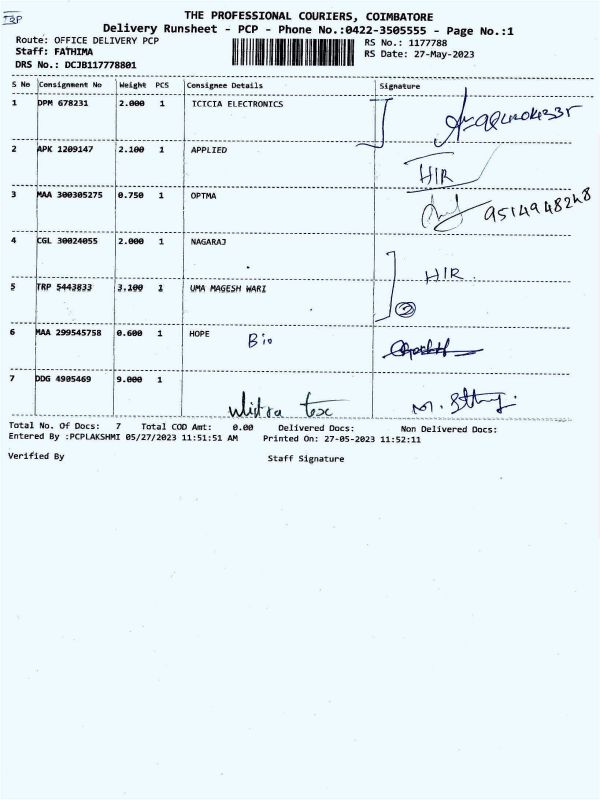 TRP
THE PROFESSIONAL COURIERS, COIMBATORE
Delivery Runsheet - PCP - Phone No.:0422-3505555 - Page No.:1
Route: OFFICE DELIVERY PCP RS No.: 1177788
Staff: FATHIMA RS Date: 27-May-2023
DRS No.: DCJB117778801
S No Consignment No Weight PCS Consignee Details Signature
1 DPM 678231 2.000 1 ICICIA ELECTRONICS
2 APK 1209147 2.100 1 APPLIED HIR
3 MAA 300305275 0.750 1 OPTMA 9514948248
4 CGL 30024055 2.000 1 NAGARAJ
HIR
5 TRP 5443833 3.100 1 UMA MAGESH WARI
2
6 MAA 299545758 0.600 1 HOPE Bio
7 DDG 4905469 9.000 1
tex M.
Total No. Of Docs: 7 Total COD Amt: 0.00 Delivered Docs: Non Delivered Docs:
Entered By :PCPLAKSHMI 05/27/2023 11:51:51 AM Printed On: 27-05-2023 11:52:11
Verified By Staff Signature